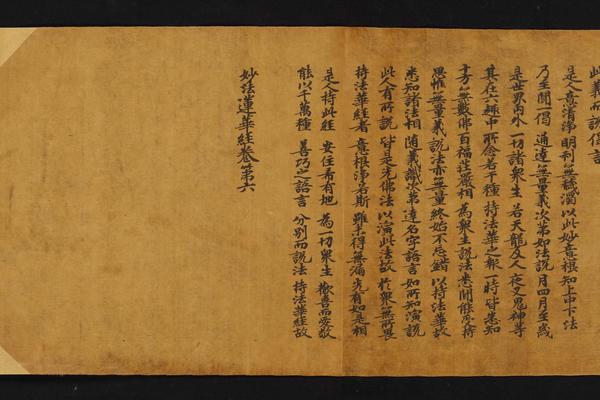 此義而說偈言
是人意清淨 明利無穢濁 以此妙意根 知上中下法
乃至聞一偈 通達無量義 次第如法說 月四月至歲
是世界內外 一切諸衆生 若天龍及人 夜叉鬼神等
其在六趣中 所念若干種 持法華之報 一時皆悉知
十方無數佛 百福莊嚴相 爲衆生說法 悉聞能受持
思惟無量義 說法亦無量 終始不忘錯 以持法華故
悉知諸法相 隨義識次第 達名字語言 如所知演說
此人有所說 皆是先佛法 以演此法故 於衆無所畏
持法華經者 意根淨若斯 雖未得無漏 先有如是相
是人持此經 安住希有地 爲一切衆生 歡喜而愛敬
能以千萬種 善巧之語言 分別而說法 持法華經故
妙法蓮華經卷第六